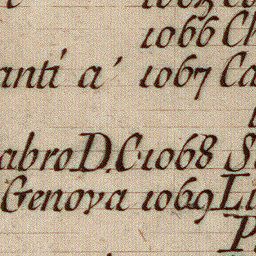 1066 Ch
anti a' 1067 Ca
abro D. C. 1068 S
Genova 1069 Li
P